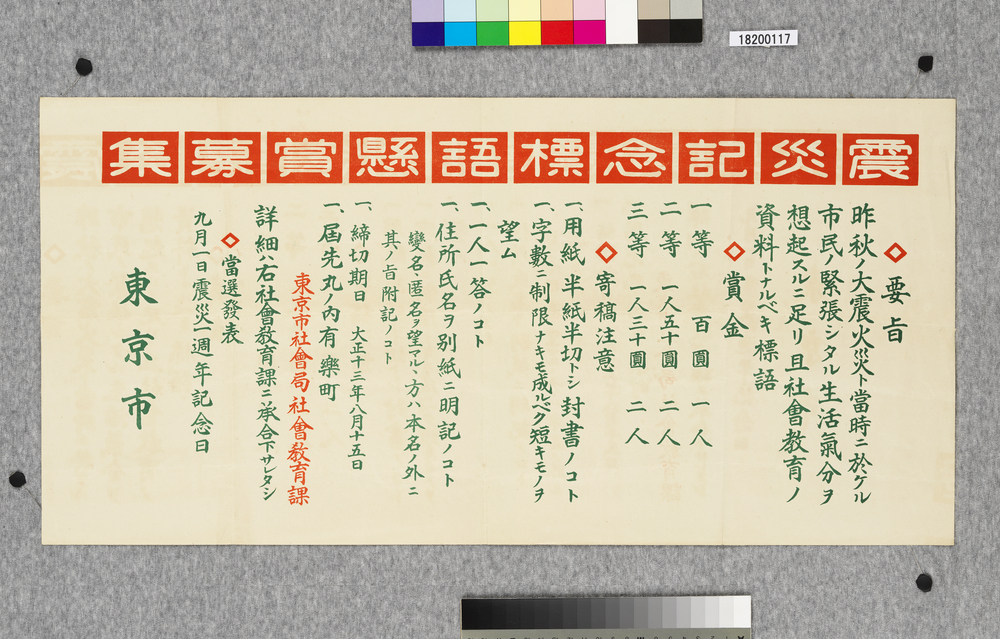 18200117
震災記念標語懸賞募集
◇要旨
昨秋ノ大震火災ト當時ニ於ケル
市民ノ緊張シタル生活氣分ヲ
想起スルニ足リ且社會教育ノ
資料トナルベキ標語
◇賞金
一等 百圓 一人
二等 一人五十圓 二人
三等 一人三十圓 二人
◇寄稿注意
一、用紙 半紙半切トシ封書ノコト
一、字數ニ制限ナキモ成ルベク短キモノヲ
望ム
一、一人一答ノコト
一、住所氏名ヲ別紙ニ明記ノコト
變名、匿名ヲ望マルヽ方ハ本名ノ外ニ
其ノ旨附記ノコト
一、締切期日 大正十三年八月十五日
一、屆先丸ノ內有樂町
東京市社會局社會教育課
詳細ハ右社會教育課ニ承合下サレタシ
◇當選發表
九月一日震災一週年記念日
東京市